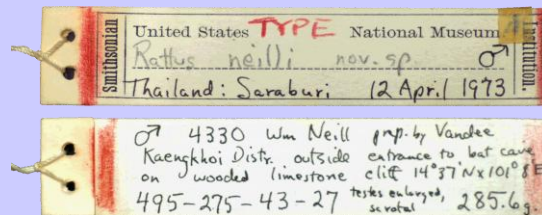 Smithsonian
United States TYPE National Museum
Institution.
Rattus neilli nov. sp. ♂
Thailand: Saraburi 12 April 1973
♂ 4330 Wm Neill prep. by Vandee
Kaengkhoi Distr. outside entrance to bat cave
on wooded limestone cliff 14°37'N x 101°8'E
495-275-43-27 testes enlarged, scrotal 285.6g.